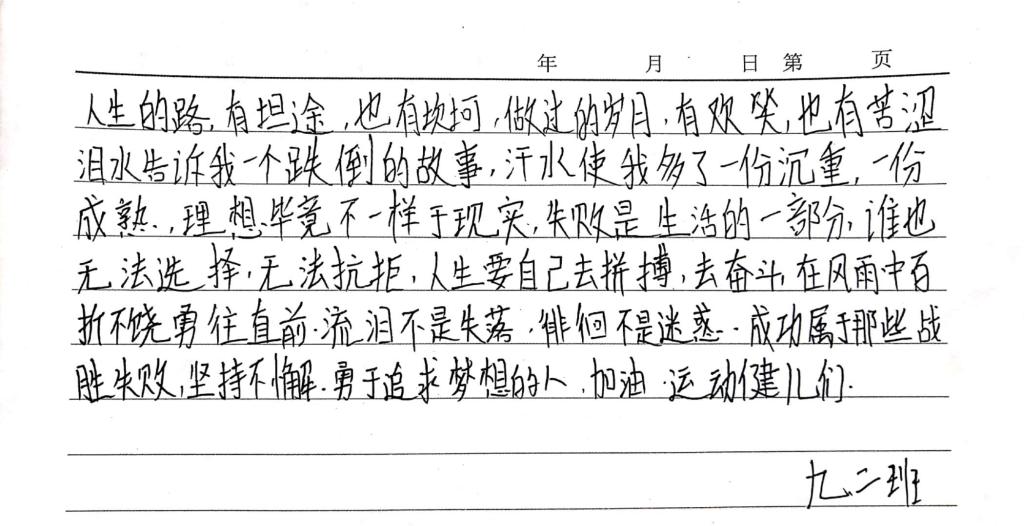 年 月 日 第 页
人生的路,有坦途,也有坎坷,做过的岁月,有欢笑,也有苦涩
泪水告诉我一个跌倒的故事,汗水使我多了一份沉重,一份
成熟.,理想毕竟不一样于现实,失败是生活的一部分,谁也
无法选择,无法抗拒,人生要自己去拼搏,去奋斗,在风雨中百
折不饶勇往直前.流泪不是失落.徘徊不是迷惑..成功属于那些战
胜失败,坚持不懈.勇于追求梦想的人.加油.运动健儿们.
九.二班